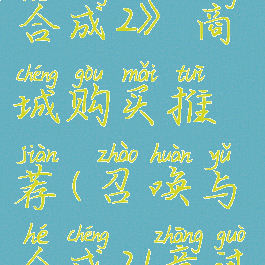 合成2》 商
chéng gòu mǎi tuī
城购买推
jiàn zhào huàn yǔ
荐(召唤与
hé chéng zhāng guò